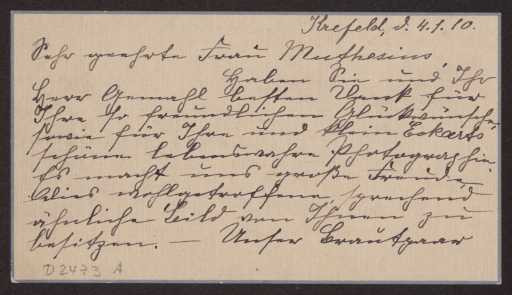 Krefeld, d. 4.1.10.
Sehr geehrte Frau Muthesius,
Haben Sie und Ihr
Herr Gemahl besten Dank für
Ihre so freundlichen Glückwünsche
sowie für Ihre und klein Eckarts
schöne lebenswahre Photographie.
Es macht uns große Freude,
dies wohlgetroffene, sprechend
ähnliche Bild von Ihnen zu
besitzen. — Unser Brautpaar
D2473 A